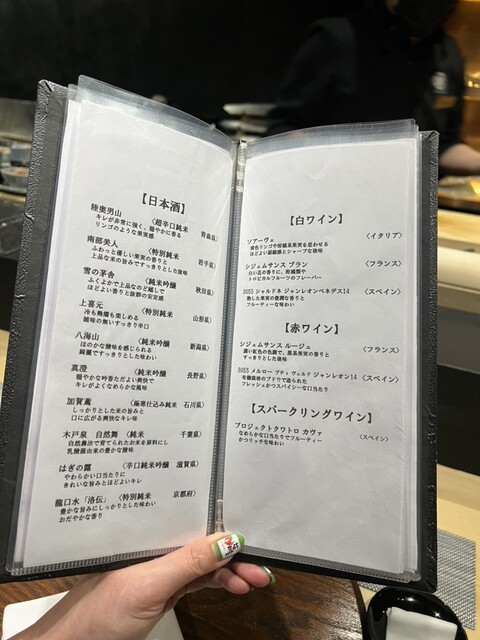 【日本酒】
陸奥男山 〈超辛口純米 青森県〉
キレが非常に強く、穏やかに香る
リンゴのような果実感
南部美人 〈特別純米 岩手県〉
ふわっと優しい果実の香りと
上品な米の旨みですっきりとした後味
雪の茅舎 〈純米吟醸 秋田県〉
ふくよかで上品なのど越しで
ほどよい香りと抜群の安定感
上喜元 〈特別純米 山形県〉
冷も熱燗も楽しめる
雑味の無いすっきり辛口
八海山 〈純米吟醸 新潟県〉
ほのかな酸味を感じられる
綺麗ですっきりとした味わい
真澄 〈純米吟醸 長野県〉
穏やかな吟香ただよい爽快で
キレがよくなめらかな風味
加賀鳶 〈極寒仕込み純米 石川県〉
しっかりとした米の旨みと
口に広がる爽快なキレ味
木戸泉 自然舞 〈純米 千葉県〉
自然農法で育てられたお米を原料にし
乳酸菌由来の豊かな酸味
はぎの露 〈辛口純米吟醸 滋賀県〉
やわらかい口当たりに
きれいな旨みとほどよいキレ
龍口水「洛伝」〈特別純米 京都府〉
豊かな旨みにしっかりとした味わい
おだやかな香り
【白ワイン】
ソアーヴェ 〈イタリア〉
黄色リンゴや柑橘系果実を思わせる
ほどよい凝縮感とシャープな後味
シジェムサンス ブラン 〈フランス〉
白い花の香りに、柑橘類や
トロピカルフルーツのフレーバー
3055 シャルドネ ジャンレオンペネデス14 〈スペイン〉
熟した果実の豊潤な香りと
フルーティーな味わい
【赤ワイン】
シジェムサンス ルージュ 〈フランス〉
濃い紅色の色調で、黒系果実の香りと
すっきりとした後味
3055 メルロー プティ ヴェルド ジャンレオン14 〈スペイン〉
有機栽培のブドウで造られた
フレッシュかつスパイシーな口当たり
【スパークリングワイン】
プロジェクトクワトロ カヴァ 〈スペイン〉
なめらかな口当たりでフルーティー
かつリッチな味わい